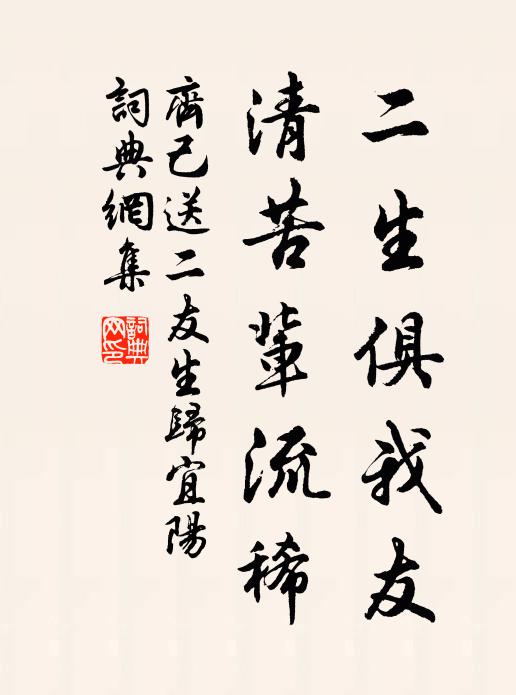 二生俱我友
清苦輩流稀
齊己送二友生歸宜陽
詞典網集
詞典
网印